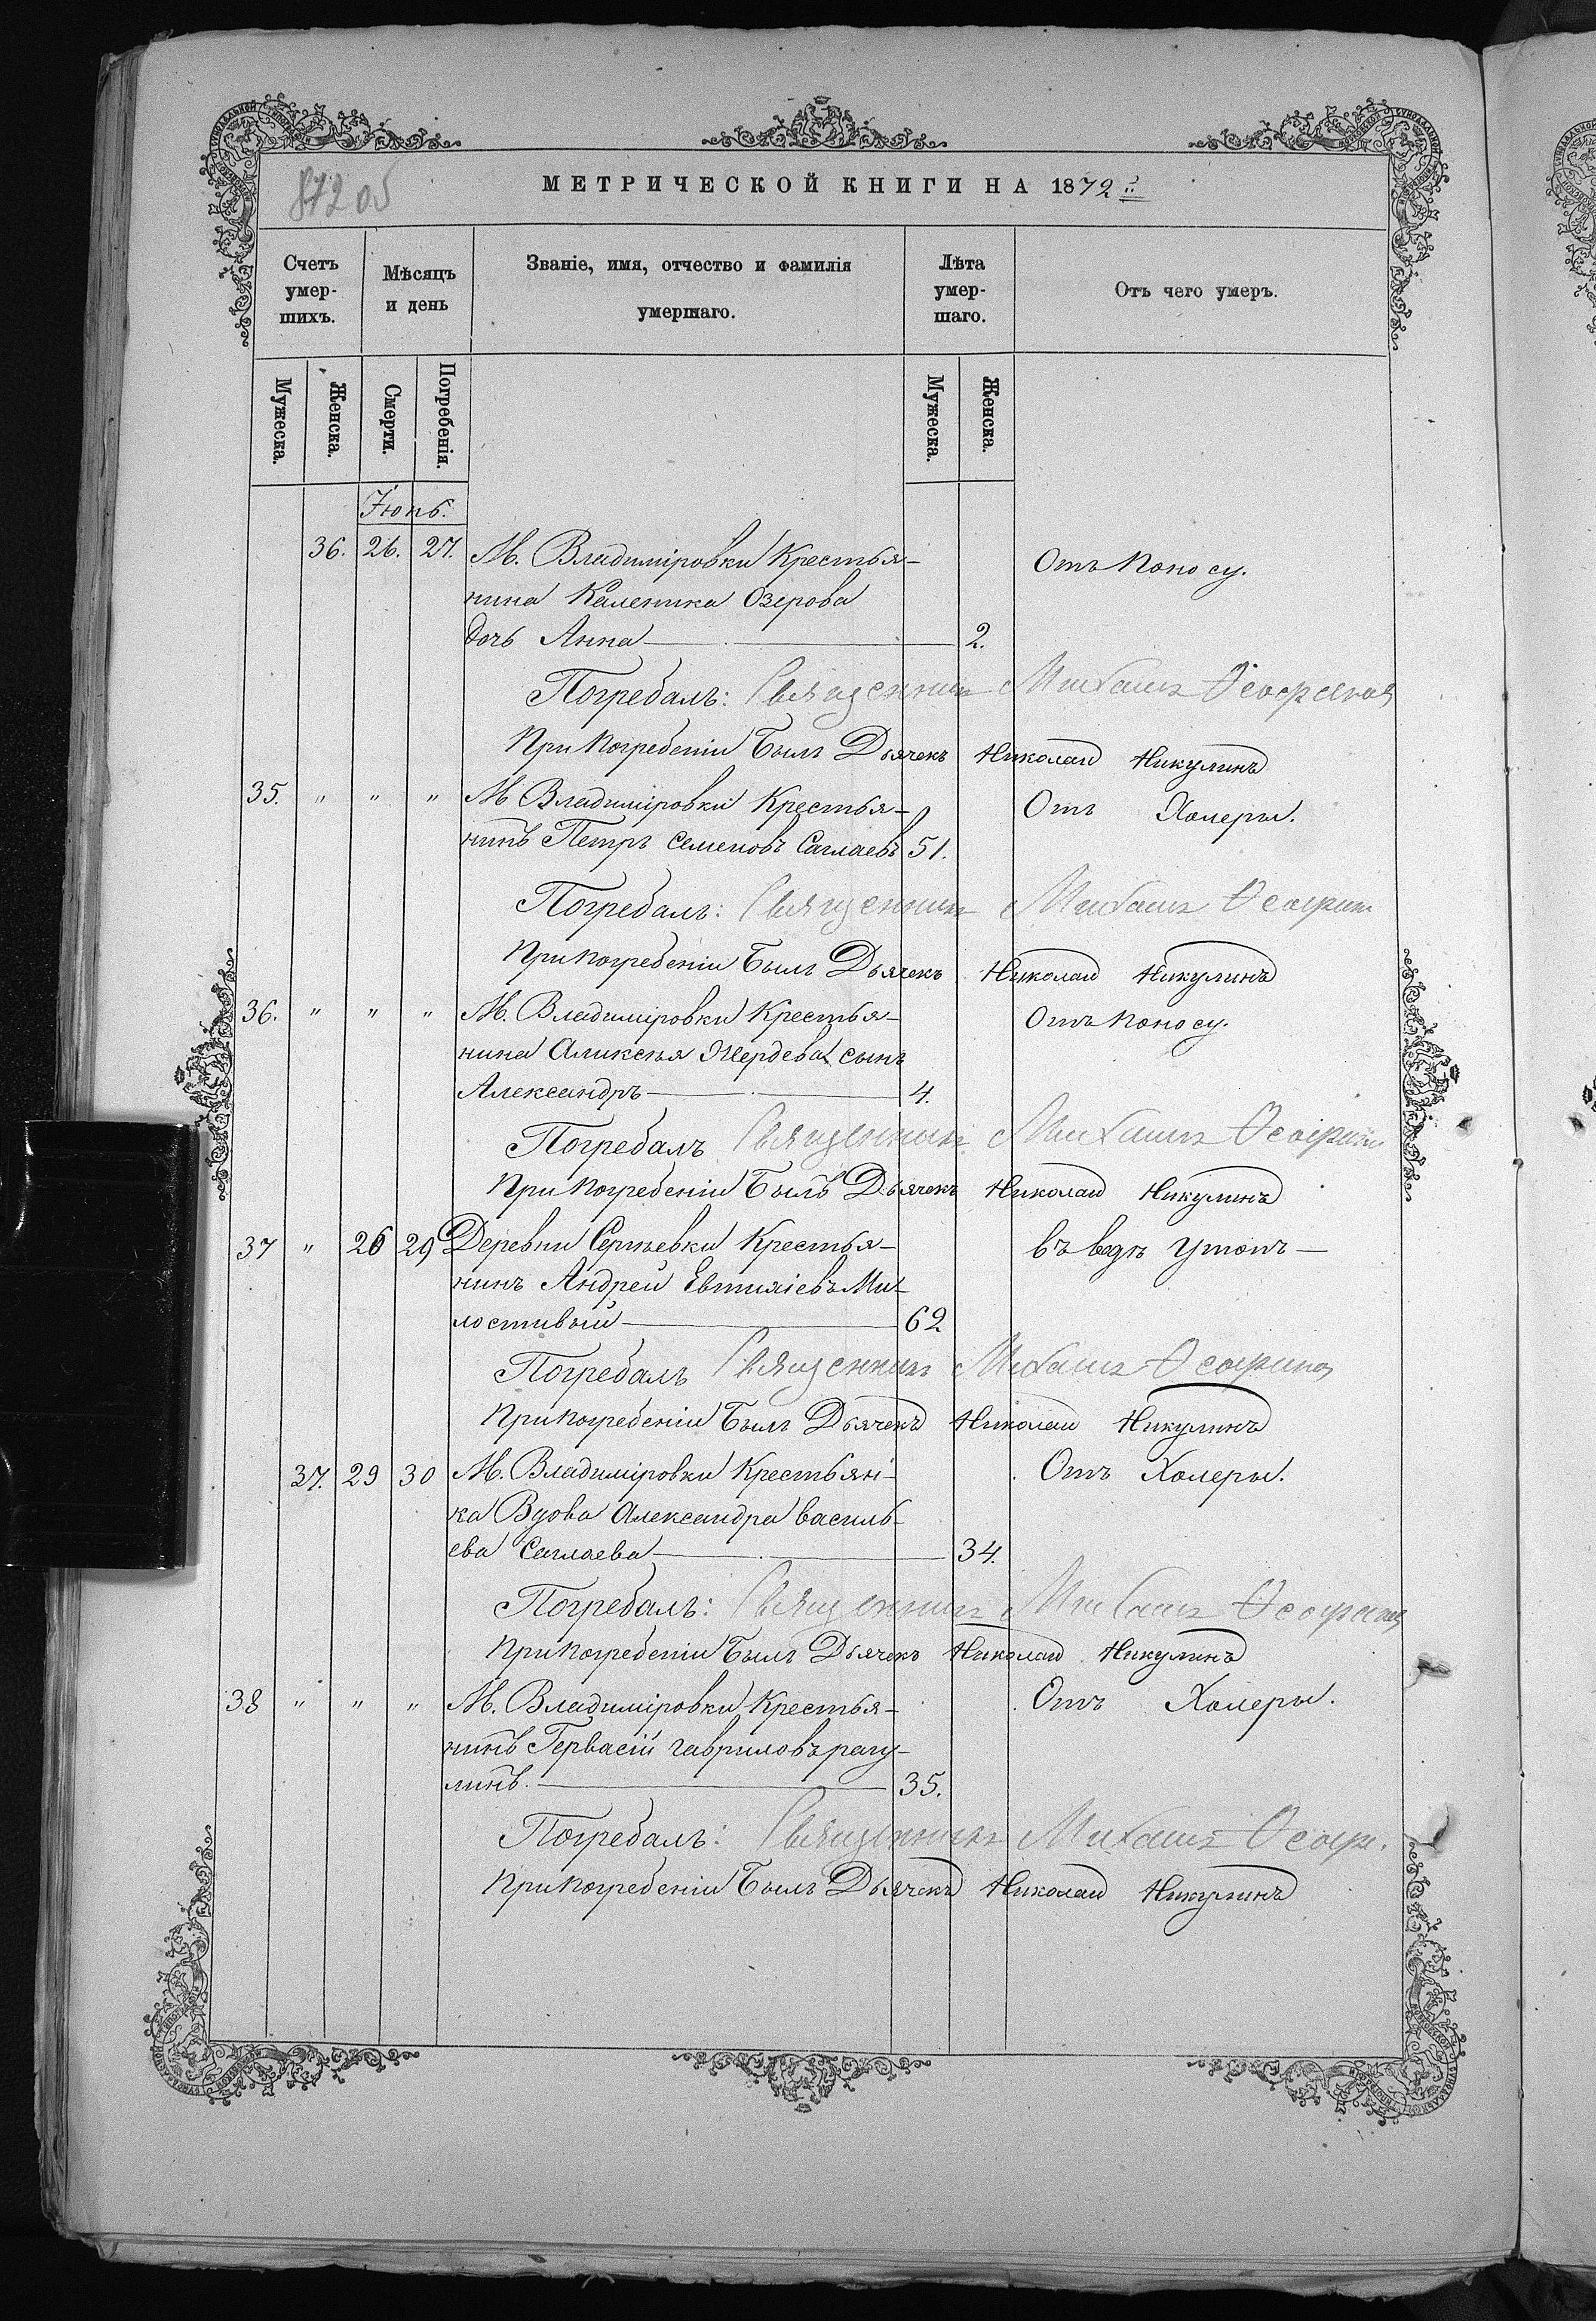 872 об
МЕТРИЧЕСКОЙ КНИГИ НА 1872 г.
Счетъ умер-шихъ.
Мѣсяцъ и день
Званіе, имя, отчество и фамилія умершаго.
Лѣта умер-шаго.
Отъ чего умеръ.
Мужеска.
Женска.
Смерти.
Погребенія.
Мужеска.
Женска.
Іюнь.
36. 26. 27. М. Владиміровки Крестья- Отъ поносу.
нина Каленика Озерова
дочь Анна 2.
Погребалъ: Священникъ Михаилъ
При погребеніи былъ Дьячекъ Николай Никулинъ
35. " " " М Владиміровки Крестья- Отъ Холеры.
нинъ Петръ Семеновъ Саглаевъ 51.
Погребалъ: Священникъ Михаилъ
При погребеніи былъ Дьячекъ Николай Никулинъ
36. " " " М. Владиміровки Крестья- Отъ поносу.
нина Аликсѣя сынъ
Александръ 4.
Погребалъ Священникъ Михаилъ
При погребеніи былъ Дьячекъ Николай Никулинъ
37 " 26 29 Деревни Сергѣевки Крестья- въ водѣ утопъ
нинъ Андрей Евтихіевъ Ми-
лостивый 62
Погребалъ Священникъ Михаилъ
При погребеніи былъ Дьячекъ Николай Никулинъ
37. 29 30 М. Владиміровки Крестьян- Отъ Холеры.
ка Вдова Александра Василь-
ева Саглаева 34.
Погребалъ: Священникъ Михаилъ
При погребеніи былъ Дьячекъ Николай Никулинъ
38 " " " М. Владиміровки Крестья- Отъ Холеры.
нинъ Гервасій Гавриловъ рагу-
линъ. 35.
Погребалъ: Священникъ Михаилъ
При погребеніи былъ Дьячекъ Николай Никулинъ